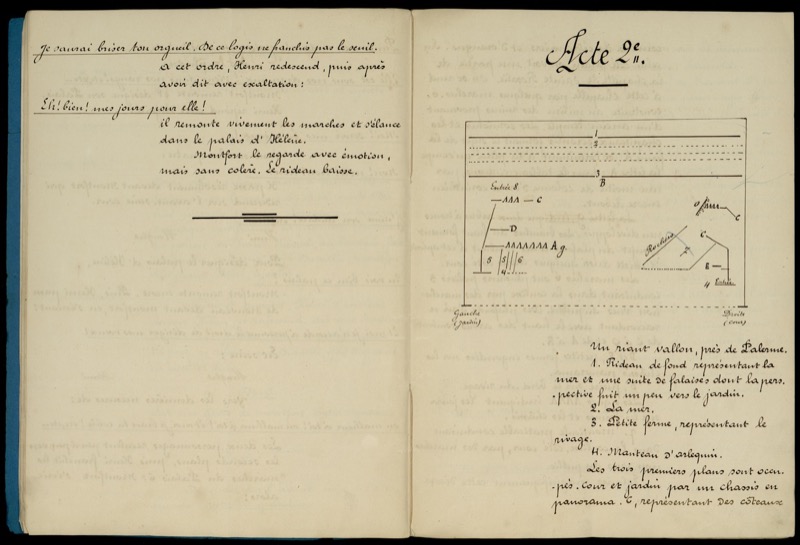 Je saurai briser ton orgueil. De ce logis ne franchis pas le seuil.
a cet ordre, Henri redescend, puis après
avoir dit avec exaltation :
Eh! bien! mes jours pour elle!
il remonte vivement les marches et s'élance
dans le palais d'Hélène.
Montfort le regarde avec émotion,
mais sans colère. Le rideau baisse.
Acte 2e.
1
2
3
B
Entrée 8
C
D
A g.
8 5 6
4
Rochers
C
C
8
4 Entrée
Gauche
(jardin)
Droite
(cour)
Un riant vallon, près de Palerme.
1. Rideau de fond représentant la
mer et une suite de falaises dont la pers-
-pective fuit un peu vers le jardin.
2. La mer.
3. Petite ferme, représentant le
rivage.
4. Manteau d'arlequin.
Les trois premiers plans sont occu-
-pés. Cour et jardin par un chassis en
panorama. C, représentant des côteaux